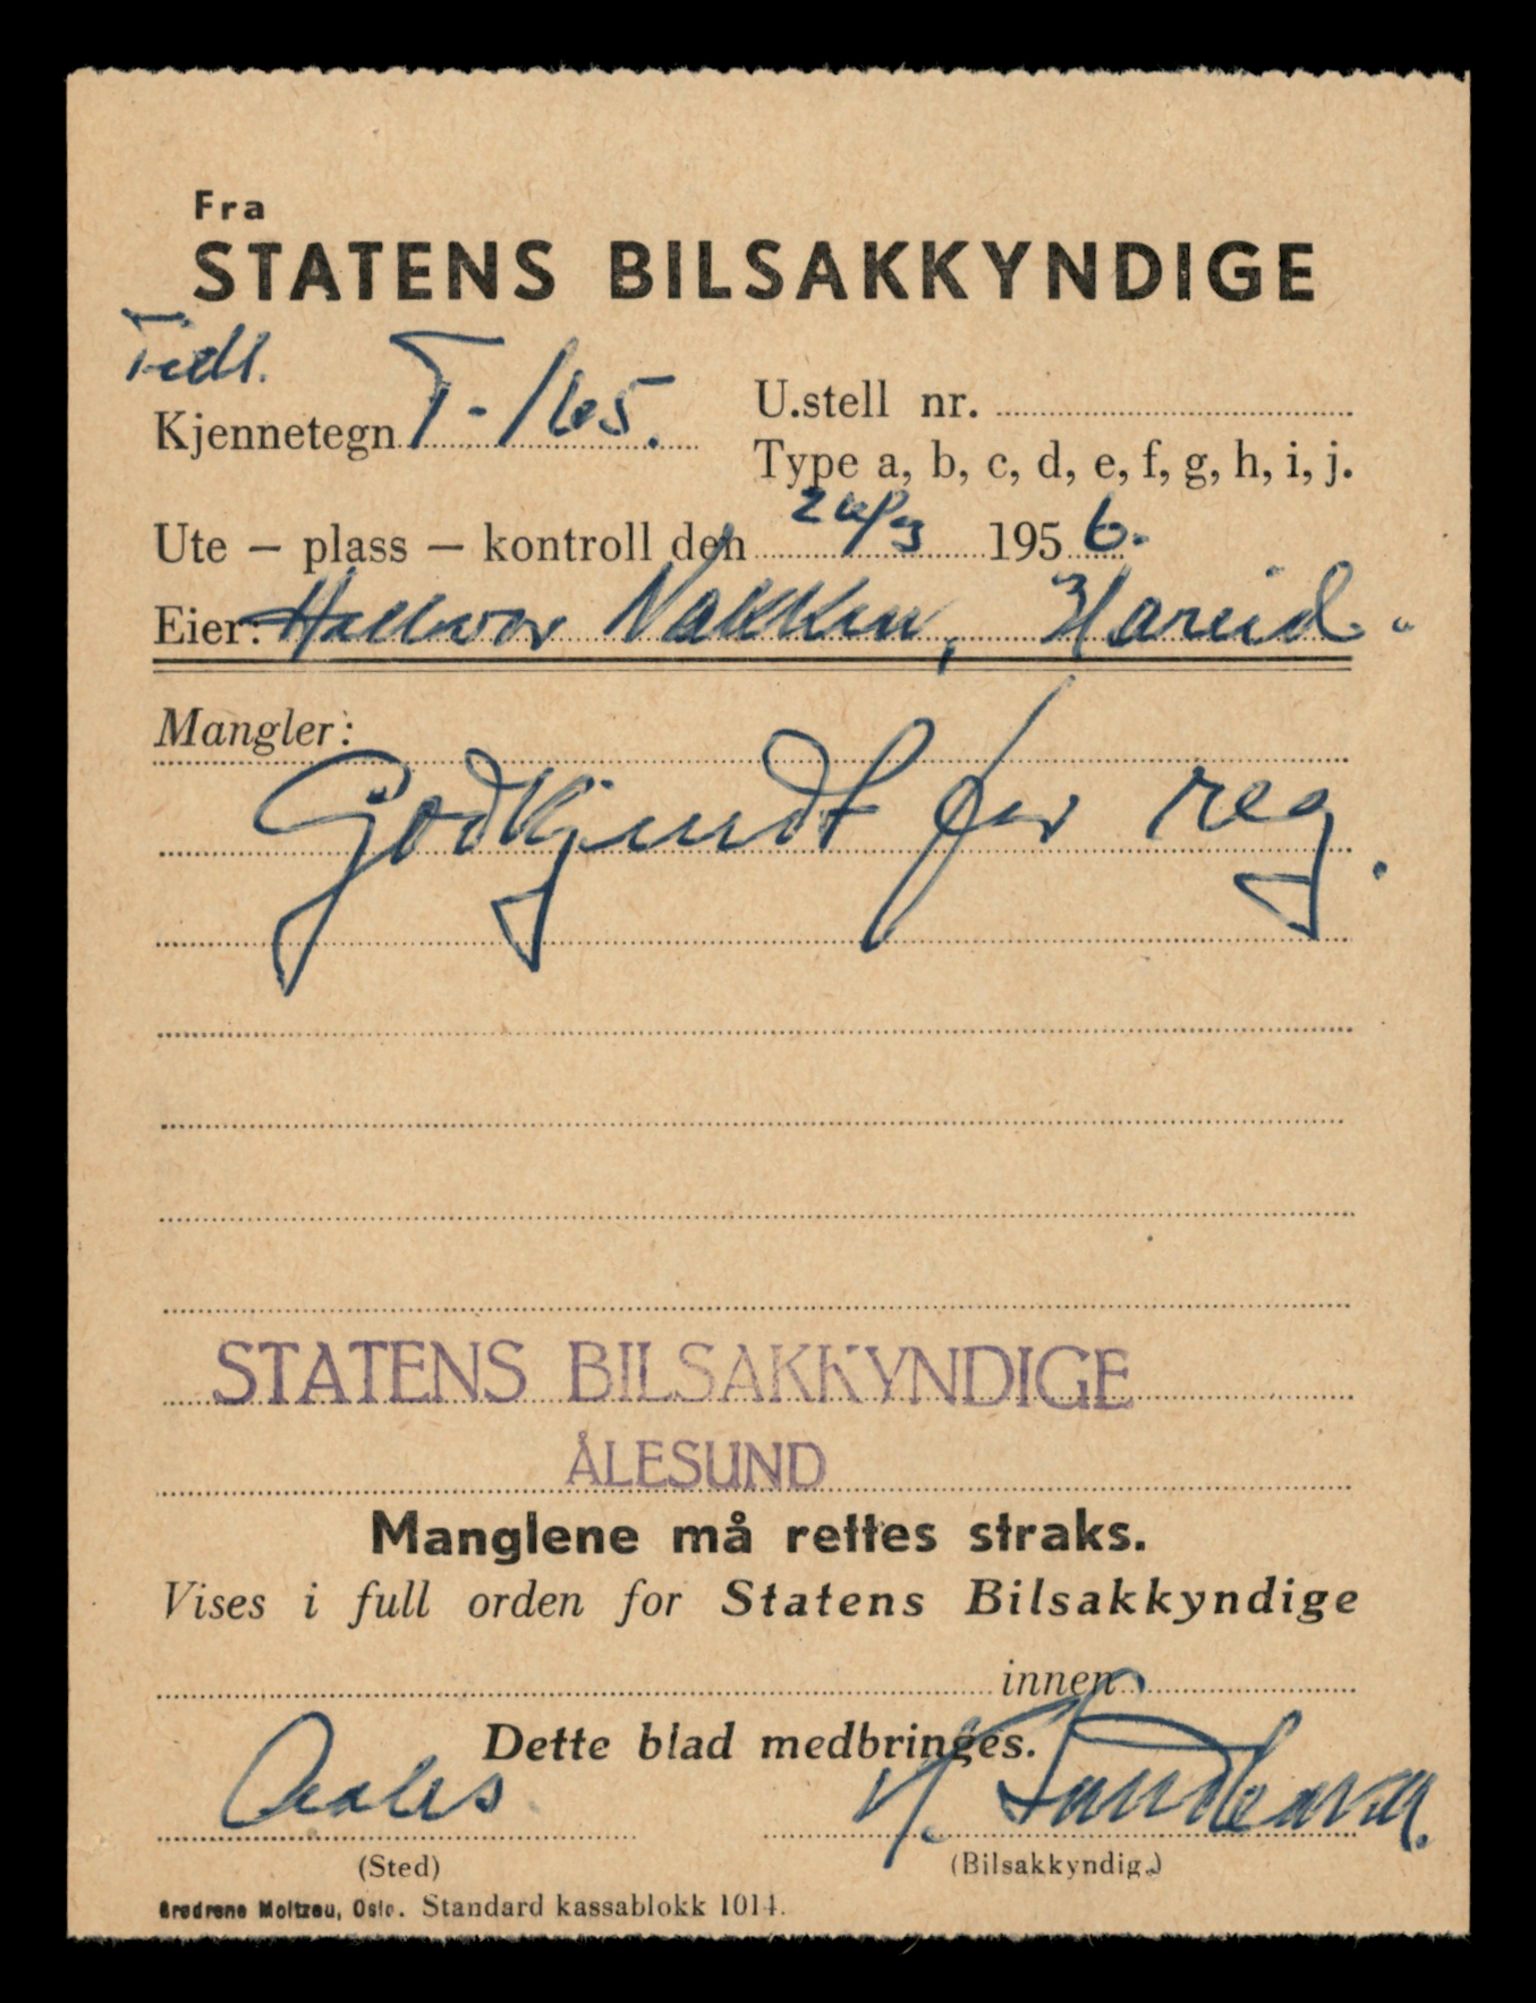 Fra
STATENS BILSAKKYNDIGE
Tidl.
Kjennetegn T-165.
U.stell nr.
Type a, b, c, d, e, f, g, h, i, j.
Ute – plass – kontroll den 195 6.
Eier: Hallvor Nakken, Hareid.
Mangler:
Godkjendt for reg.
STATENS BILSAKKYNDIGE
ÅLESUND
Manglene må rettes straks.
Vises i full orden for Statens Bilsakkyndige
innen
Dette blad medbringes.
(Sted)
(Bilsakkyndig.)
Brødrene Moltzau, Oslo. Standard kassablokk 1014.